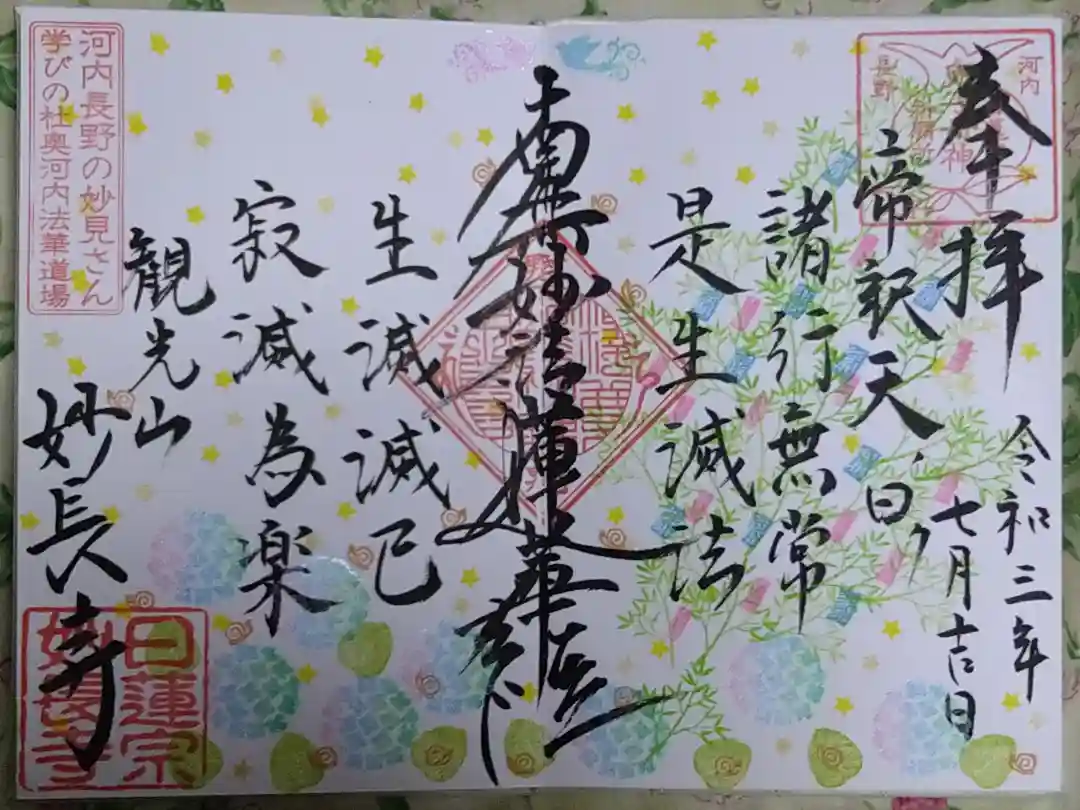 奉拝
令和三年
七月吉日
帝釈天曰ク
諸行無常
是生滅法
南無妙法蓮華経
生滅滅已
寂滅為楽
観光山
妙長寺
河内
長野
河内長野の妙見さん
学びの杜奥河内法華道場
日蓮宗
妙長寺